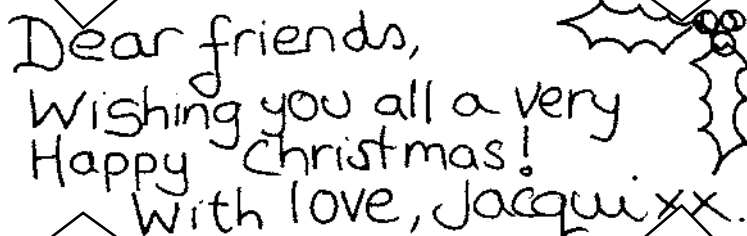 Dear friends,
Wishing you all a very
Happy Christmas!
With love, Jacqui xx.